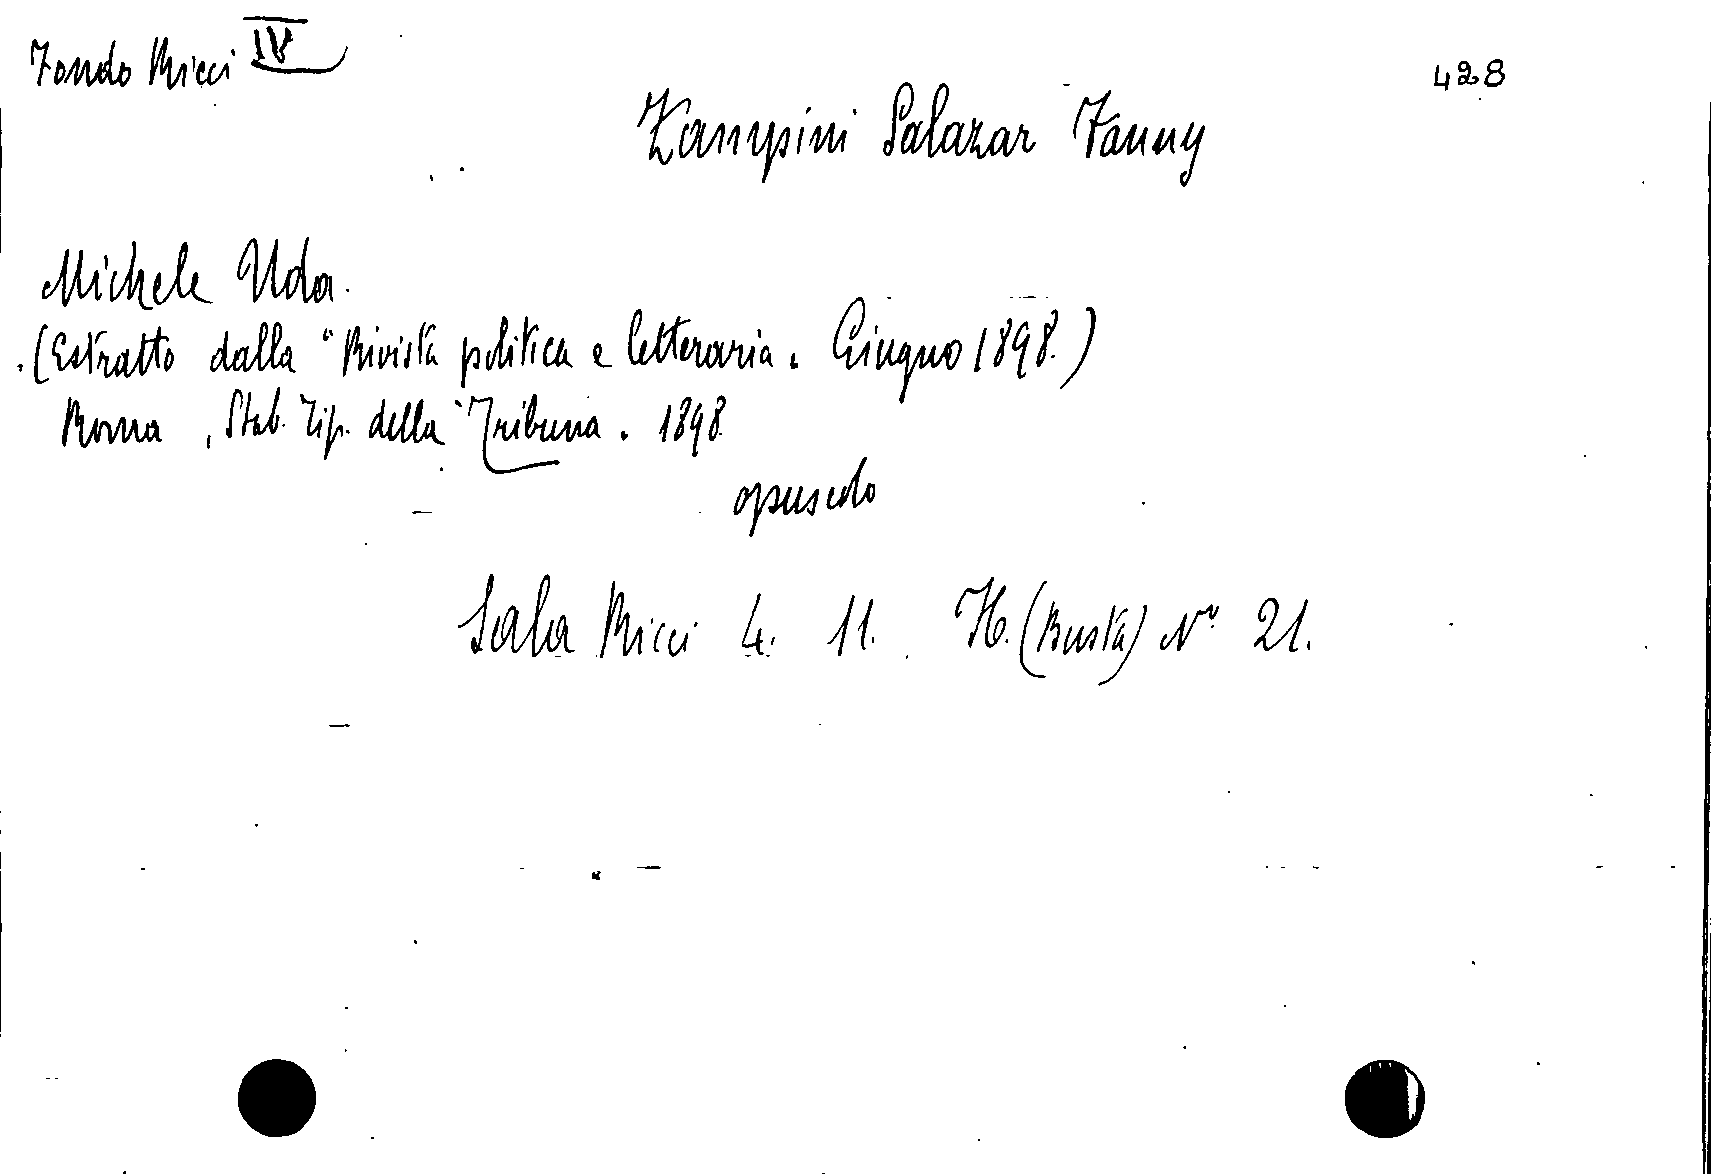 Fondo Ricci IV
428
Zampini Salazar Fanny
Michele Uda.
(Estratto dalla "Rivista politica e letteraria. Giugno 1898.)
Roma, Stab. Tip. della Tribuna. 1898
opuscolo
Sala Ricci 4. 11. H. (Busta) N° 21.